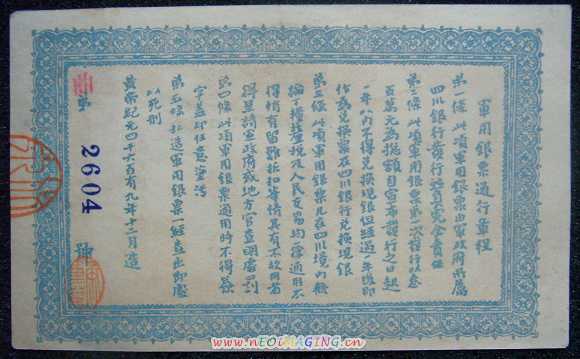 軍用銀票通行章程
第一條 此項軍用銀票由軍政府所屬
四川銀行發行政府完全責任
第二條 此項軍用銀票第一次發行以叁
百萬元為總額自宣布發行之日起
一年以內不得兌換現銀但經過一年後即
作為兌換票在四川銀行兌換現銀
第三條 此項軍用銀票凡在四川境內無
論丁糧稅及人民交易均一律通用不
得稍有留難折扣等情具有不收用者
得呈請軍政府或地方官查明處罰
第四條 此項軍用銀票通用時不得簽
字蓋印任意塗污
第五條 造軍用銀票一經查出即處
以死刑
黃帝紀元四千六百有九年十二月造
第 2604 號
www.nEOiMAGING.cn